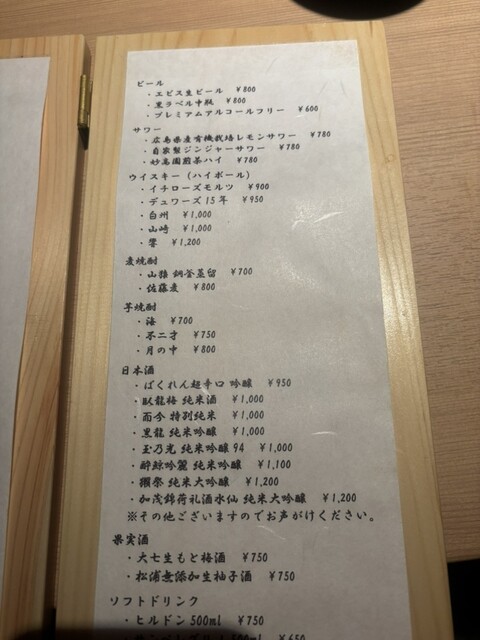 ビール
・エビス生ビール ¥800
・黒ラベル中瓶 ¥800
・プレミアムアルコールフリー ¥600
サワー
・広島県産有機栽培レモンサワー ¥780
・自家製ジンジャーサワー ¥780
・妙高園煎茶ハイ ¥780
ウイスキー（ハイボール）
・イチローズモルツ ¥900
・デュワーズ 15年 ¥950
・白州 ¥1,000
・山崎 ¥1,000
・響 ¥1,200
麦焼酎
・山猿 銅釜蒸留 ¥700
・佐藤麦 ¥800
芋焼酎
・海 ¥700
・不二才 ¥750
・月の中 ¥800
日本酒
・ばくれん超辛口 吟醸 ¥950
・臥龍梅 純米酒 ¥1,000
・而今 特別純米 ¥1,000
・黒龍 純米吟醸 ¥1,000
・玉乃光 純米吟醸 94 ¥1,000
・酔鯨吟麗 純米吟醸 ¥1,100
・獺祭 純米大吟醸 ¥1,200
・加茂錦荷札酒水仙 純米大吟醸 ¥1,200
※その他ございますのでお声がけください。
果実酒
・大七生もと梅酒 ¥750
・松浦無添加生柚子酒 ¥750
ソフトドリンク
・ヒルドン 500ml ¥750
500ml ¥650